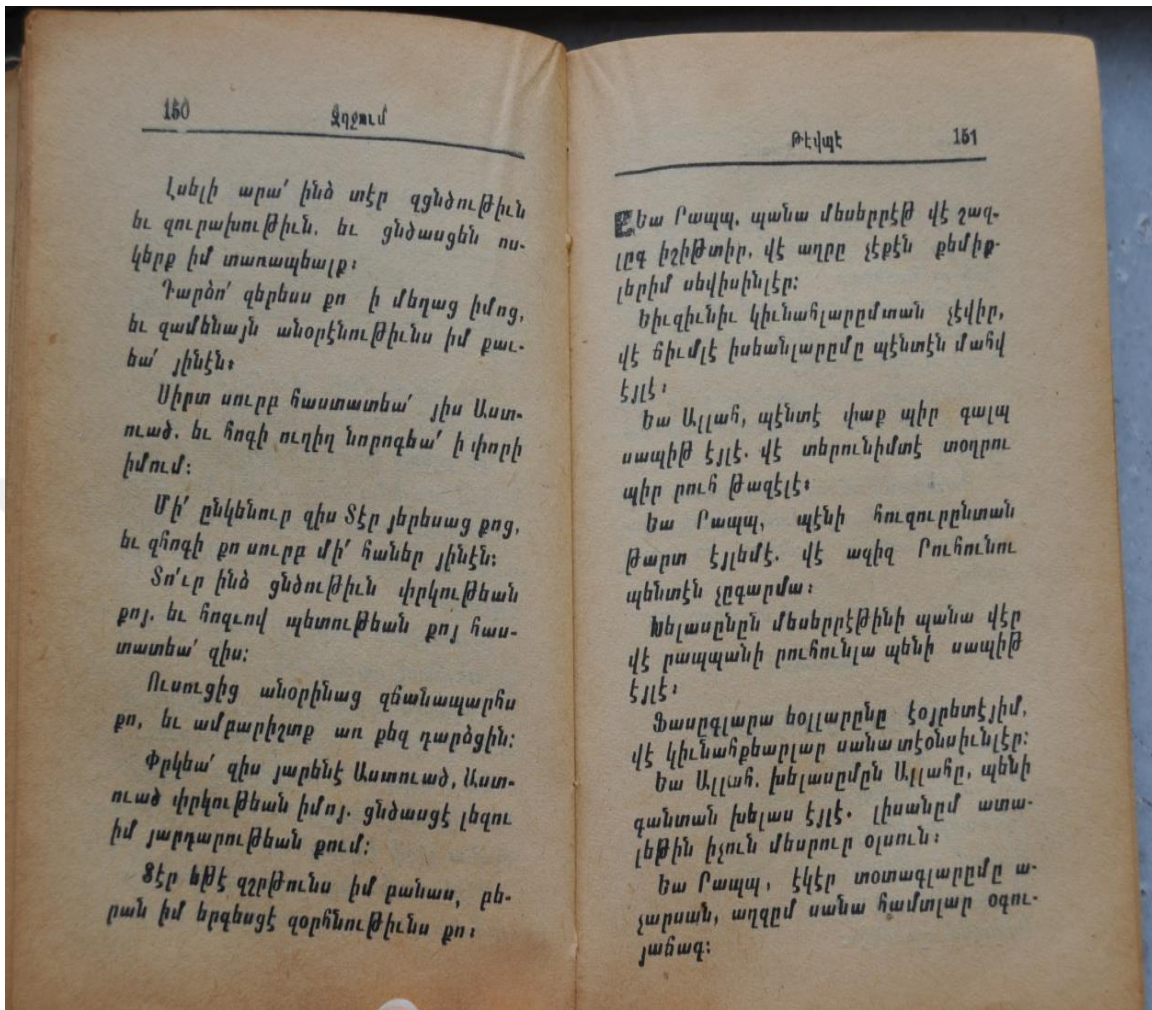 150
Զղջում
Լսելի արա՛ ինձ տէր զցնծութիւն
եւ զուրախութիւն. եւ ցնծասցեն ոս-
կերք իմ տառապեալք։
Դարձո՛ զերեսս քո ի մեղաց իմոց,
եւ զամենայն անօրէնութիւնս իմ քաւ-
եա՛ յինէն։
Սիրտ սուրբ հաստատեա՛ յիս Աստ-
ուած. եւ հոգի ուղիղ նորոգեա՛ ի փորի
իմում։
Մի՛ ընկենուր զիս Տէր յերեսաց քոց,
եւ զհոգի քո սուրբ մի՛ հաներ յինէն։
Տո՛ւր ինձ ցնծութիւն փրկութեան
քոյ. եւ հոգւով պետութեան քոյ հաս-
տատեա՛ զիս։
Ուսուցից անօրինաց զճանապարհս
քո, եւ ամբարիշտք առ քեզ դարձցին։
Փրկեա՛ զիս յարենէ Աստուած, Աստ-
ուած փրկութեան իմոյ. ցնծասցէ լեզու
իմ յարդարութեան քում։
Տէր եթէ զշրթունս իմ բանաս, բե-
րան իմ երգեսցէ զօրհնութիւնս քո։
Թէվպէ
151
Եա Րապպ, պանա մեսերրէթ վէ շազ-
լըգ իշիթտիր, վէ աղրը չէքէն քեմիք-
լերիմ սեվիսինլէր։
Եիւզիւնիւ կիւնահլարըմտան չէվիր,
վէ ճիւմլէ իսեանլարըմը պէնտէն մահվ
էյլէ։
Եա Ալլահ, պէնտէ փաք պիր գալպ
սապիթ էյլէ. վէ տերունիմտէ տօղրու
պիր րուհ թազէլէ։
Եա Րապպ, պէնի հուզուրընտան
թարտ էյլեմէ. վէ ազիզ Րուհունու
պենտէն չըգարմա։
Խելասընըն մեսերրէթինի պանա վէր
վէ րապպանի րուհունլա պենի սապիթ
էյլէ։
Ֆասըգլարա եօլլարընը էօյրետէյիմ,
վէ կիւնահքեարլար սանա տէօնսիւնլէր։
Եա Ալլահ, խելասըմըն Ալլահը, պենի
գանտան խելաս էյլէ. լիսանըմ ատա-
լեթին իչուն մեսրուր օլսուն։
Եա Րապպ, էկէր տօտագլարըմը ա-
չարսան, աղզըմ սանա համտլար օգու-
յաճագ։